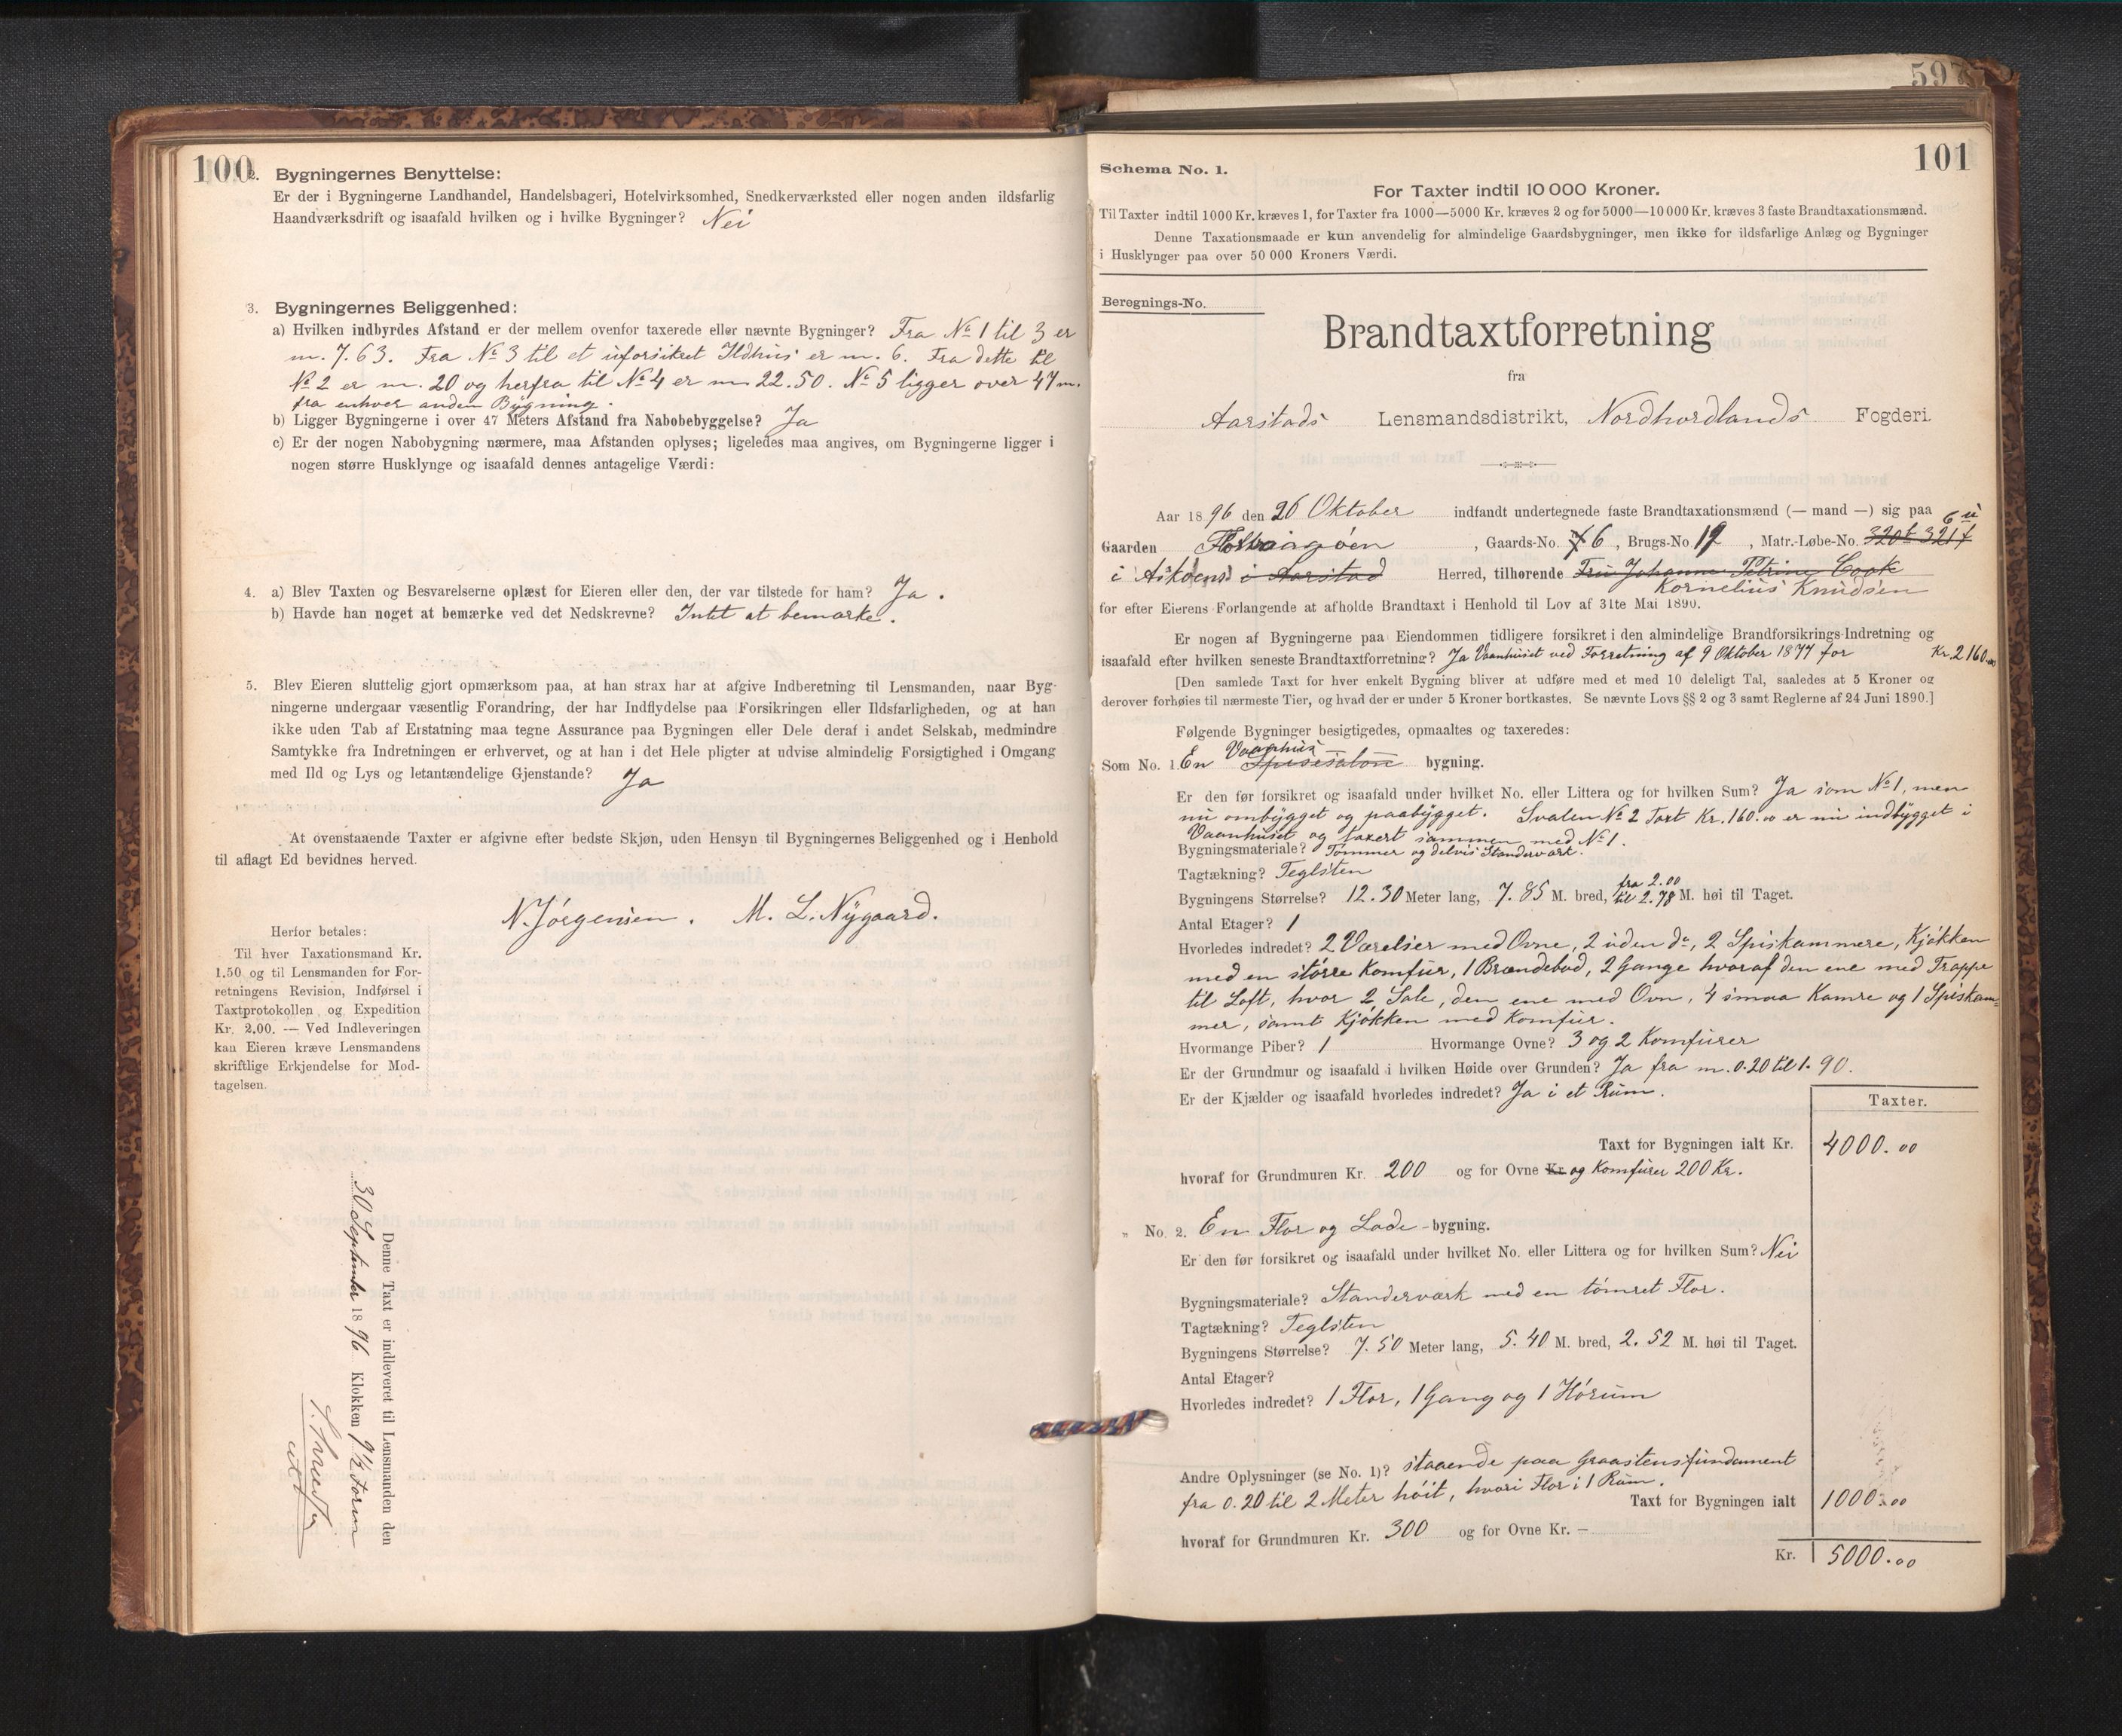 100
2. Bygningernes Benyttelse:
Er der i Bygningerne Landhandel, Handelsbageri, Hotelvirksomhed, Snedkerværksted eller nogen anden ildsfarlig
Haandværksdrift og isaafald hvilken og i hvilke Bygninger? Nei
3. Bygningernes Beliggenhed:
a) Hvilken indbyrdes Afstand er der mellem ovenfor taxerede eller nævnte Bygninger? Fra No 1 til 3 er
m. 7.63. Fra No 3 til et uforsikret Ildhus er m. 6. Fra dette til
No 2 er m. 20 og herfra til No 4 er m 22.50. No 5 ligger over 47 m.
fra enhver anden Bygning.
b) Ligger Bygningerne i over 47 Meters Afstand fra Nabobebyggelse? Ja
c) Er der nogen Nabobygning nærmere, maa Afstanden oplyses; ligeledes maa angives, om Bygningerne ligger i
nogen større Husklynge og isaafald dennes antagelige Værdi:
4. a) Blev Taxten og Besvarelserne oplæst for Eieren eller den, der var tilstede for ham? Ja.
b) Havde han noget at bemærke ved det Nedskrevne? Intet at bemærke.
5. Blev Eieren sluttelig gjort opmærksom paa, at han strax har at afgive Indberetning til Lensmanden, naar Byg-
ningerne undergaar væsentlig Forandring, der har Indflydelse paa Forsikringen eller Ildsfarligheden, og at han
ikke uden Tab af Erstatning maa tegne Assurance paa Bygningen eller Dele deraf i andet Selskab, medmindre
Samtykke fra Indretningen er erhvervet, og at han i det Hele pligter at udvise almindelig Forsigtighed i Omgang
med Ild og Lys og letantændelige Gjenstande? Ja
At ovenstaaende Taxter er afgivne efter bedste Skjøn, uden Hensyn til Bygningernes Beliggenhed og i Henhold
til aflagt Ed bevidnes herved.
N. Jørgensen. M. L. Nygaard.
Herfor betales:
Til hver Taxationsmand Kr.
1.50 og til Lensmanden for For-
retningens Revision, Indførsel i
Taxtprotokollen og Expedition
Kr. 2.00. — Ved Indleveringen
kan Eieren kræve Lensmandens
skriftlige Erkjendelse for Mod-
tagelsen.
Denne Taxt er indleveret til Lensmanden den
30 September 1896 Klokken 9 1/2 Form
597
101
Schema No. 1.
For Taxter indtil 10 000 Kroner.
Til Taxter indtil 1000 Kr. kræves 1, for Taxter fra 1000—5000 Kr. kræves 2 og for 5000—10 000 Kr. kræves 3 faste Brandtaxationsmænd.
Denne Taxationsmaade er kun anvendelig for almindelige Gaardsbygninger, men ikke for ildsfarlige Anlæg og Bygninger
i Husklynger paa over 50 000 Kroners Værdi.
Beregnings-No.
Brandtaxtforretning
fra
Aarstads Lensmandsdistrikt, Nordhordlands Fogderi.
Aar 1896 den 26 Oktober indfandt undertegnede faste Brandtaxationsmænd (— mand —) sig paa
Gaarden Florvaagøen, Gaards-No. 7 6, Brugs-No. 19, Matr.-Løbe-No. 320 & 321 f
i Askøens i Aarstad Herred, tilhørende Fru Johanne Petrine Cook
Kornelius Knudsen
for efter Eierens Forlangende at afholde Brandtaxt i Henhold til Lov af 31te Mai 1890.
Er nogen af Bygningerne paa Eiendommen tidligere forsikret i den almindelige Brandforsikrings-Indretning og
isaafald efter hvilken seneste Brandtaxtforretning? Ja Vaanhuset ved Forretning af 9 Oktober 1877 for Kr. 2160.00
[Den samlede Taxt for hver enkelt Bygning bliver at udføre med et med 10 deleligt Tal, saaledes at 5 Kroner og
derover forhøies til nærmeste Tier, og hvad der er under 5 Kroner bortkastes. Se nævnte Lovs §§ 2 og 3 samt Reglerne af 24 Juni 1890.]
Følgende Bygninger besigtigedes, opmaaltes og taxeredes:
Vaanhus
Som No. 1. En Spisesalon bygning.
Er den før forsikret og isaafald under hvilket No. eller Littera og for hvilken Sum? Ja som No 1, men
nu ombygget og paabygget. Svalen No 2 Taxt Kr. 160.00 er nu indbygget i
Vaanhuset og taxert sammen med No 1.
Bygningsmateriale? Tømmer og delvis Standerværk.
Tagtækning? Teglsten
Bygningens Størrelse? 12.30 Meter lang, 7.85 M. bred, fra 2.00 til 2.78 M. høi til Taget.
Antal Etager? 1
Hvorledes indredet? 2 Værelser med Ovne, 2 uden do, 2 Spiskammere, Kjøkken
med en større Komfur, 1 Brændebod, 2 Gange hvoraf den ene med Trappe
til Loft, hvor 2 Sale, den ene med Ovn, 4 smaa Kamre og 1 Spiskam-
mer, samt Kjøkken med Komfur.
Hvormange Piber? 1 Hvormange Ovne? 3 og 2 Komfurer
Er der Grundmur og isaafald i hvilken Høide over Grunden? Ja fra m. 0.20 til 1.90.
Er der Kjælder og isaafald hvorledes indredet? Ja i et Rum.
Taxter.
Taxt for Bygningen ialt Kr. 4000.00
hvoraf for Grundmuren Kr. 200 og for Ovne Kr. og Komfurer 200 Kr.
„ No. 2. En Flor og Lade-bygning.
Er den før forsikret og isaafald under hvilket No. eller Littera og for hvilken Sum? Nei
Bygningsmateriale? Standerværk med en tømret Flor.
Tagtækning? Teglsten
Bygningens Størrelse? 7.50 Meter lang, 5.40 M. bred, 2.52 M. høi til Taget.
Antal Etager?
Hvorledes indredet? 1 Flor, 1 Gang og 1 Hørum
Andre Oplysninger (se No. 1)? staaende paa Graastensfundament
fra 0.20 til 2 Meter høit, hvori Flor i 1 Rum.
Taxt for Bygningen ialt 1000.00
hvoraf for Grundmuren Kr. 300 og for Ovne Kr. —
Kr. 5000.00